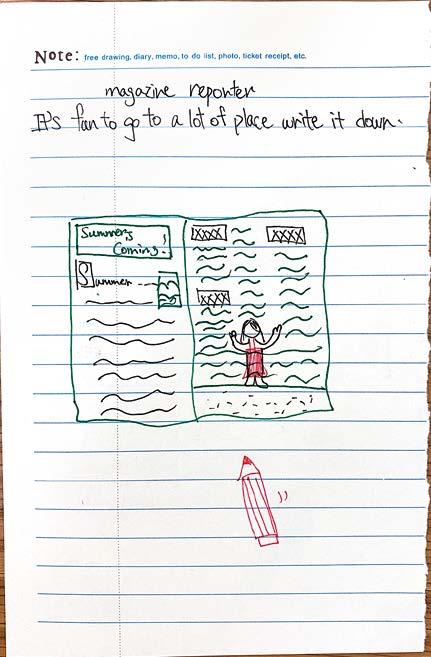 Note: free drawing, diary, memo, to do list, photo, ticket receipt, etc.
magazine reporter
It's fun to go to a lot of place write it down.
Summer's
Coming!
Summer
XXXX
XXXX
XXXX